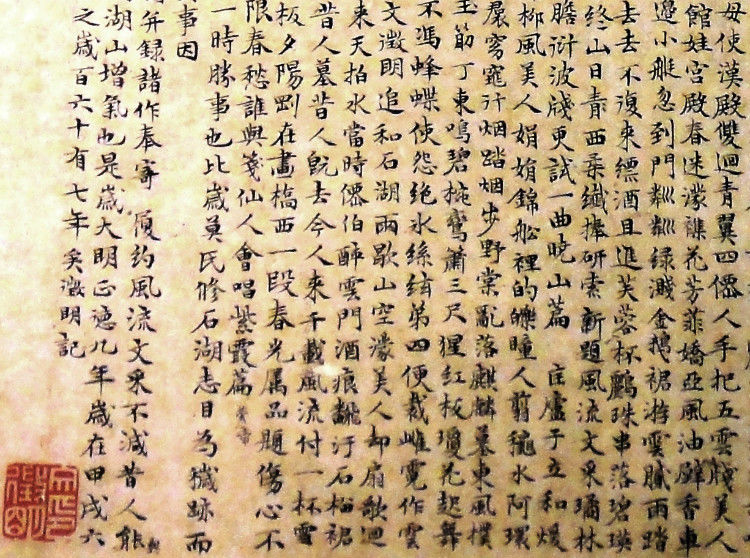 母使漢殿雙迴青翼四儛人手把五雲牋美人
館娃宮殿春迷濛襍花芳菲嬌亞風油壁香車
過小艇忽到門粼粼綠濺金裙游雲膩雨踏
去去不復來縹酒且進芙蓉杯鸝珠串落碧瑤
終山日青西柔纖捧研索新題風流文采璚林
衍波牋更試一曲曉山篇 于立和煖
柳風美人娟娟錦船裡的皪瞳人剪穐水阿環
窈窕行烟踏烟步野棠亂落麒麟墓東風樸
玉筯丁東鳴碧椀鸞蕭三尺猩紅板瓊花起舞
不馮蜂蝶使怨絶水絲絃第四便裁雌霓作雲
文澂明追和石湖雨歇山空濛美人却扇歌迴
來天拍水當時儛伯醉雲門酒痕汙石榴裙
昔人墓昔人既去今人來千載風流付一杯雪
板夕陽剛在畫橋西一段春光屬品題傷心不
限春愁誰與箋仙人會唱紫霞篇
一時勝事也比歲莫氏修石湖志目為穢跡而
事因
年錄諸作奉寄 履約風流文采不減昔人能
湖山增氣也是歲大明正德九年歲在甲戌六
之歲百六十有七年矣徵明記